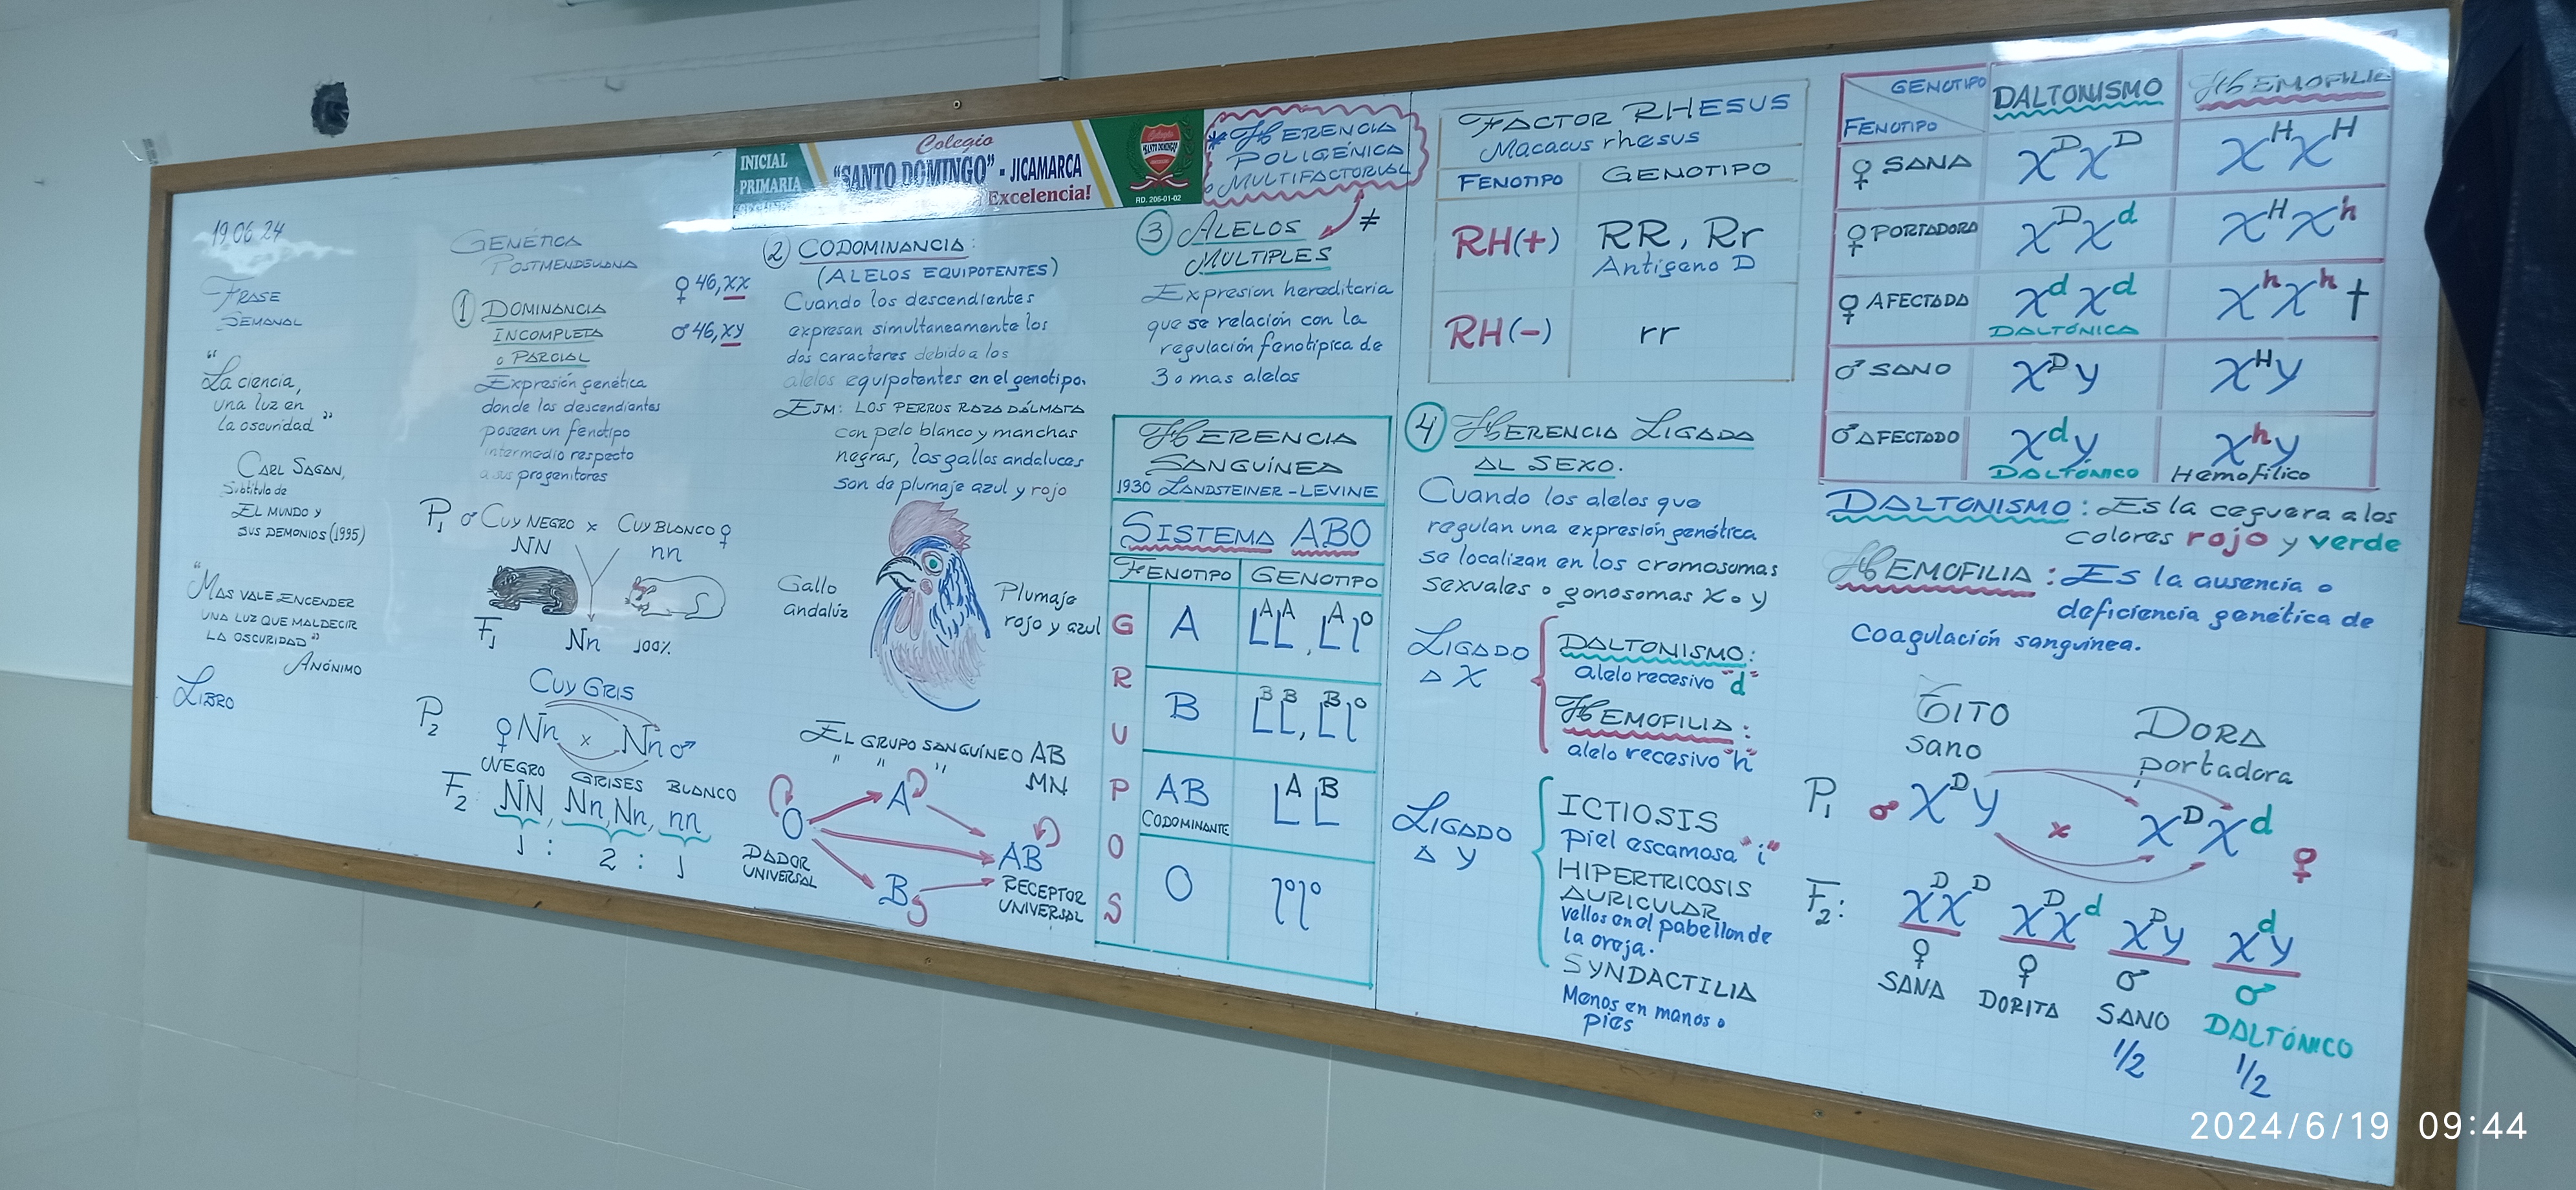 INICIAL
PRIMARIA
Colegio
"SANTO DOMINGO" - JICAMARCA
Excelencia!
Colegio
"SANTO DOMINGO"
RD. 206-01-02
19 06 24
FRASE
SEMANAL
"La ciencia,
una luz en
la oscuridad"
CARL SAGAN,
Subtítulo de
EL MUNDO y
SUS DEMONIOS (1995)
"MAS VALE ENCENDER
UNA LUZ QUE MALDECIR
LA OSCURIDAD"
ANÓNIMO
LIBRO
GENÉTICA
POSTMENDELIANA
♀ 46, XX
♂ 46, XY
1 DOMINANCIA
INCOMPLETA
o PARCIAL
Expresión genética
donde los descendientes
poseen un fenotipo
intermedio respecto
a sus progenitores
P1 ♂ CUY NEGRO x CUY BLANCO ♀
NN nn
F1 Nn 100%
CUY GRIS
P2 ♀ Nn x Nn ♂
NEGRO GRISES BLANCO
F2: NN, Nn, Nn, nn
1 : 2 : 1
2 CODOMINANCIA:
(ALELOS EQUIPOTENTES)
Cuando los descendientes
expresan simultaneamente los
dos caracteres debido a los
alelos equipotentes en el genotipo.
EJM: LOS PERROS RAZA DÁLMATA
con pelo blanco y manchas
negras, los gallos andaluces
son de plumaje azul y rojo
Gallo
andalúz
Plumaje
rojo y azul
EL GRUPO SANGUÍNEO AB
" " " MN
O A B AB
DADOR
UNIVERSAL
RECEPTOR
UNIVERSAL
* HERENCIA
POLIGÉNICA
o MULTIFACTORIAL
≠
3 ALELOS
MULTIPLES
Expresion hereditaria
que se relación con la
regulación fenotípica de
3 o mas alelos
HERENCIA
SANGUÍNEA
1930 LANDSTEINER - LEVINE
SISTEMA ABO
FENOTIPO GENOTIPO
GRUPOS
A LᴬLᴬ, Lᴬlᴼ
B LᴮLᴮ, Lᴮlᴼ
AB LᴬLᴮ
CODOMINANTE
O lᴼlᴼ
FACTOR RHESUS
Macacus rhesus
FENOTIPO GENOTIPO
RH(+) RR, Rr
Antígeno D
RH(-) rr
4 HERENCIA LIGADA
AL SEXO.
Cuando los alelos que
regulan una expresión genética
se localizan en los cromosomas
sexuales o gonosomas X o y
LIGADO
A X
DALTONISMO:
alelo recesivo "d"
HEMOFILIA:
alelo recesivo "h"
LIGADO
A Y
ICTIOSIS
piel escamosa "i"
HIPERTRICOSIS
AURICULAR
vellos en el pabellon de
la oreja.
SYNDACTILIA
Menos en manos o
pies
GENOTIPO
FENOTIPO
DALTONISMO HEMOFILIA
♀ SANA XᴰXᴰ XᴴXᴴ
♀ PORTADORA XᴰXᵈ XᴴXʰ
♀ AFECTADA XᵈXᵈ XʰXʰ †
DALTÓNICA
♂ SANO Xᴰy Xᴴy
♂ AFECTADO Xᵈy Xʰy
DALTÓNICO Hemofílico
DALTONISMO: Es la ceguera a los
colores rojo y verde
HEMOFILIA: Es la ausencia o
deficiencia genética de
Coagulación sanguínea.
TITO DORA
sano portadora
P1 ♂ Xᴰy x XᴰXᵈ ♀
F2: XᴰXᴰ XᴰXᵈ Xᴰy Xᵈy
♀ ♀ ♂ ♂
SANA DORITA SANO DALTÓNICO
1/2 1/2
2024/6/19 09:44